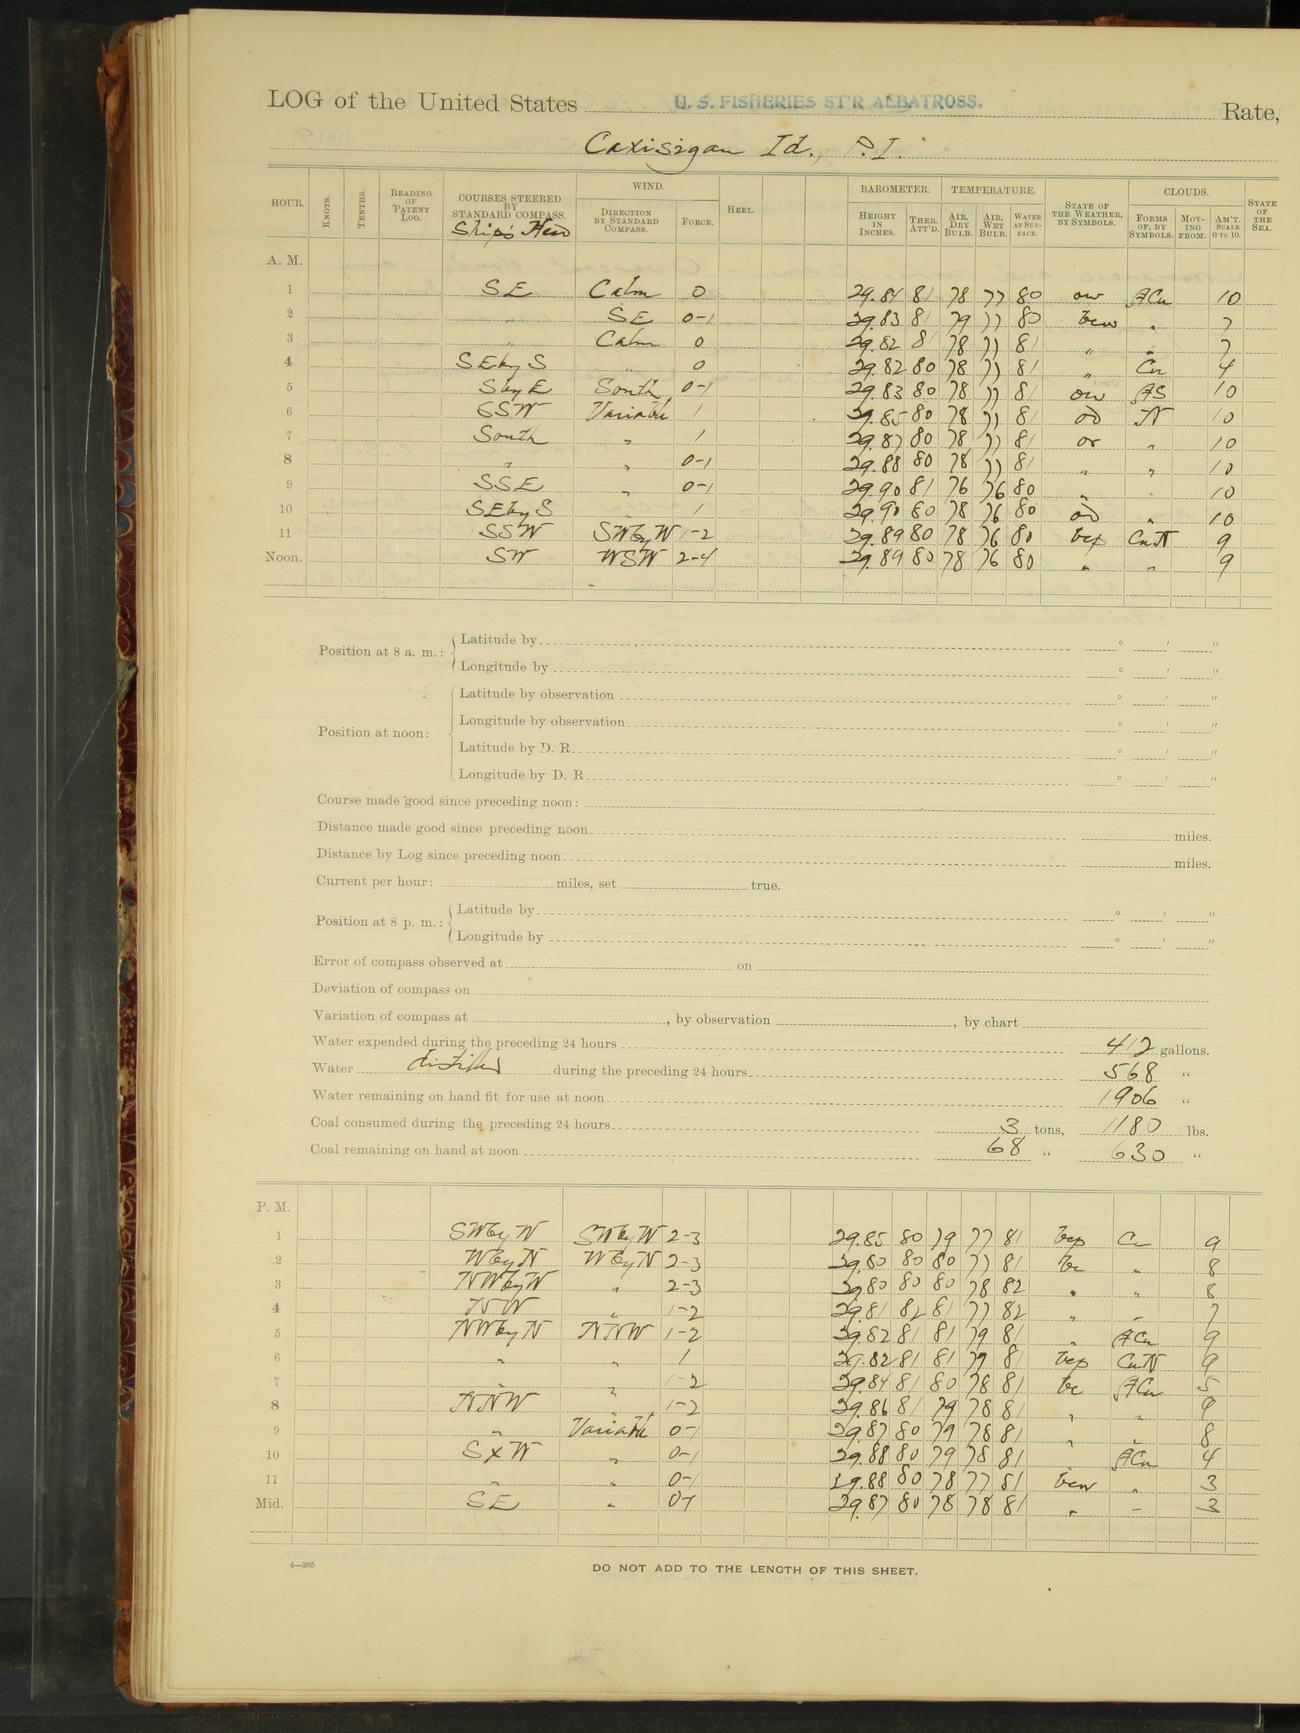 LOG of the United States U. S. FISHERIES ST'R ALBATROSS. Rate,
Caxisigan Id., P.I.
HOUR. KNOTS. TENTHS. READING OF PATENT LOG. COURSES STEERED BY STANDARD COMPASS. Ship's Head WIND. DIRECTION BY STANDARD COMPASS. FORCE. HEEL. BAROMETER. HEIGHT IN INCHES. THER. ATT'D. TEMPERATURE. AIR, DRY BULB. AIR, WET BULB. WATER AT SURFACE. STATE OF THE WEATHER, BY SYMBOLS. CLOUDS. FORMS OF, BY SYMBOLS. MOVING FROM. AM'T. SCALE 0 TO 10. STATE OF THE SEA.
A. M.
1 SE Calm 0 29.84 81 78 77 80 ow ACu 10
2 " SE 0-1 29.83 81 79 77 80 bcw " 7
3 " Calm 0 29.82 81 78 77 81 " " 7
4 SEbyS " 0 29.82 80 78 77 81 " Cu 4
5 SbyE South 0-1 29.83 80 78 77 81 ow AS 10
6 SSW Variable 1 29.85 80 78 77 81 od N 10
7 South " 1 29.87 80 78 77 81 or " 10
8 " " 0-1 29.88 80 78 77 81 " " 10
9 SSE " 0-1 29.90 81 76 76 80 " " 10
10 SEbyS " 1 29.90 80 78 76 80 od " 10
11 SSW SWbyW 1-2 29.89 80 78 76 80 bcp CuN 9
Noon. SW WSW 2-4 29.89 80 78 76 80 " " 9
Position at 8 a. m.: Latitude by ° ′ ″
Longitude by ° ′ ″
Position at noon: Latitude by observation ° ′ ″
Longitude by observation ° ′ ″
Latitude by D. R. ° ′ ″
Longitude by D. R. ° ′ ″
Course made good since preceding noon:
Distance made good since preceding noon miles.
Distance by Log since preceding noon miles.
Current per hour: miles, set true.
Position at 8 p. m.: Latitude by ° ′ ″
Longitude by ° ′ ″
Error of compass observed at on
Deviation of compass on
Variation of compass at , by observation , by chart
Water expended during the preceding 24 hours 412 gallons.
Water distilled during the preceding 24 hours 568 "
Water remaining on hand fit for use at noon 1906 "
Coal consumed during the preceding 24 hours 3 tons, 1180 lbs.
Coal remaining on hand at noon 68 " 630 "
P. M.
1 SWbyW SWbyW 2-3 29.85 80 79 77 81 bcp Cu 9
2 WbyN WbyN 2-3 29.80 80 80 77 81 bc " 8
3 NWbyW " 2-3 29.80 80 80 78 82 " " 8
4 NW " 1-2 29.81 82 81 77 82 " " 7
5 NWbyN NNW 1-2 29.82 81 81 79 81 " ACu 9
6 " " 1 29.82 81 81 79 81 bcp CuN 9
7 " " 1-2 29.84 81 80 78 81 bc ACu 5
8 NNW " 1-2 29.86 81 79 78 81 " " 9
9 " Variable 0-1 29.87 80 79 78 81 " " 8
10 SxW " 0-1 29.88 80 79 78 81 ACu 4
11 " " 0-1 29.88 80 78 77 81 bcw " 3
Mid. SE " 0-1 29.87 80 78 78 81 " " 3
4—265
DO NOT ADD TO THE LENGTH OF THIS SHEET.